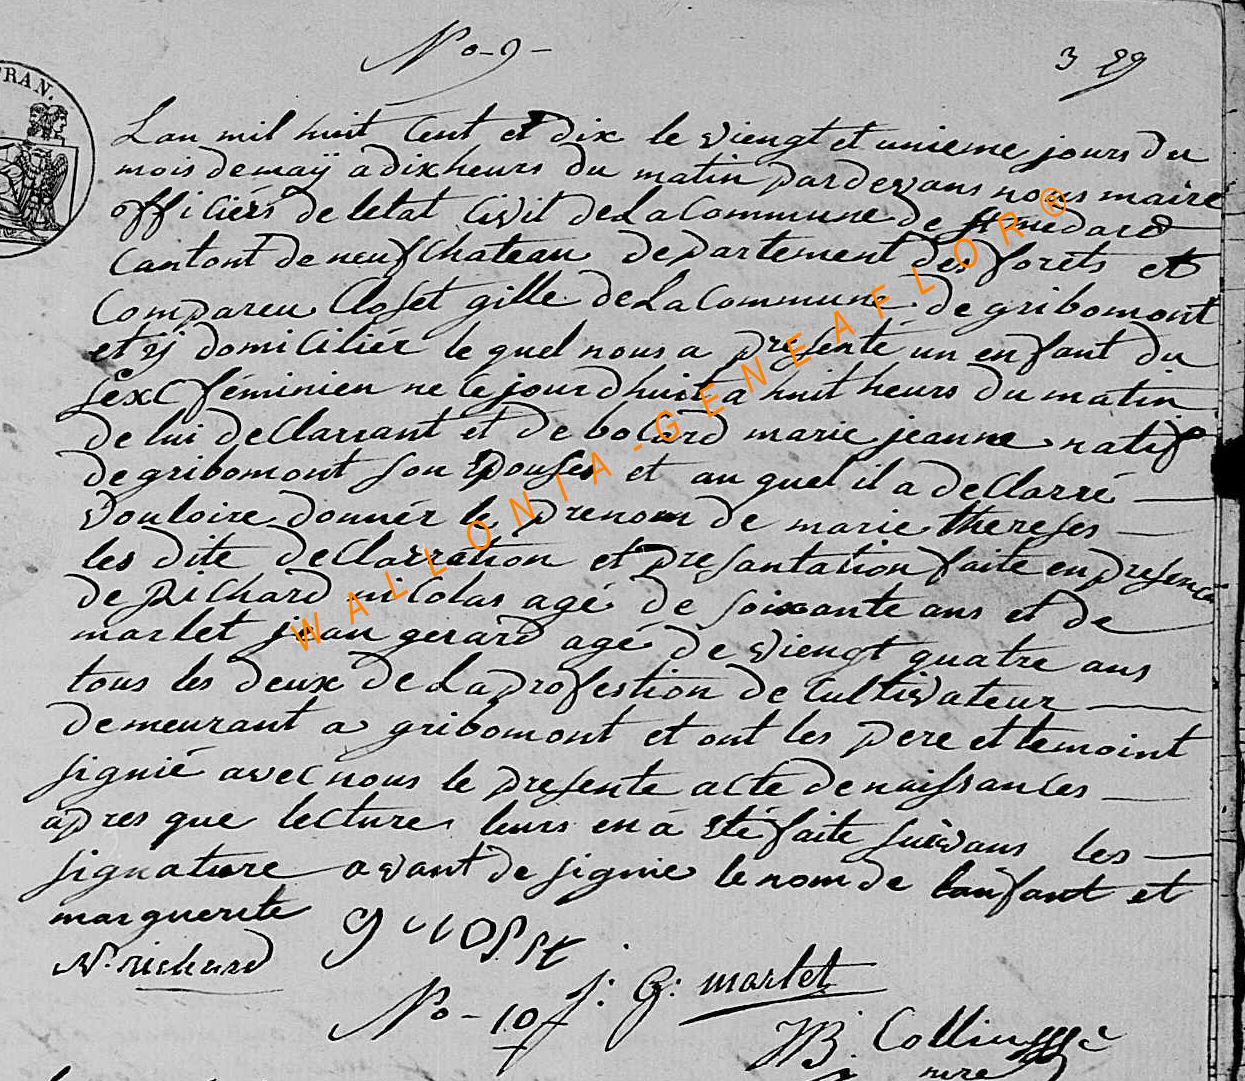 No - 9 -
3 29
FRAN.
Lan mil huit Cent et dix le viengt et unieme jours du
mois de maÿ a dix heurs du matin pardevans nous maire
officiérs de letat Civil de La Commune de st medard
Cantont de neufchateau departement des forêts et
Compareu Closet gille de La Commune de gribomont
et ÿ domiciliér le quel nous a presenté un enfant du
sexe féminien ne ce jourdhuit a huit heurs du matin
de lui declarrant et de bolard marie jeanne natif
de gribomont son Epouses et au quel il a declarré
vouloire donnér le prenom de marie thereses
les dite declarration et presantation faite en presence
de Richard nicolas agé de soixante ans et de
marlet jean gerard agé de viengt quatre ans
tous les deux de La profestion de Cultivateur
demeurant a gribomont et ont les pere et temoint
signié avec nous le presente acte de naissances
apres que lectures leurs en á Eté faite suivans les
signature avant de signie le nom de lanfant et
marguerite
N. richard
J. G. marlet
No - 10
JB. Collin
mre
WALLONIA-GENEAFLOR®